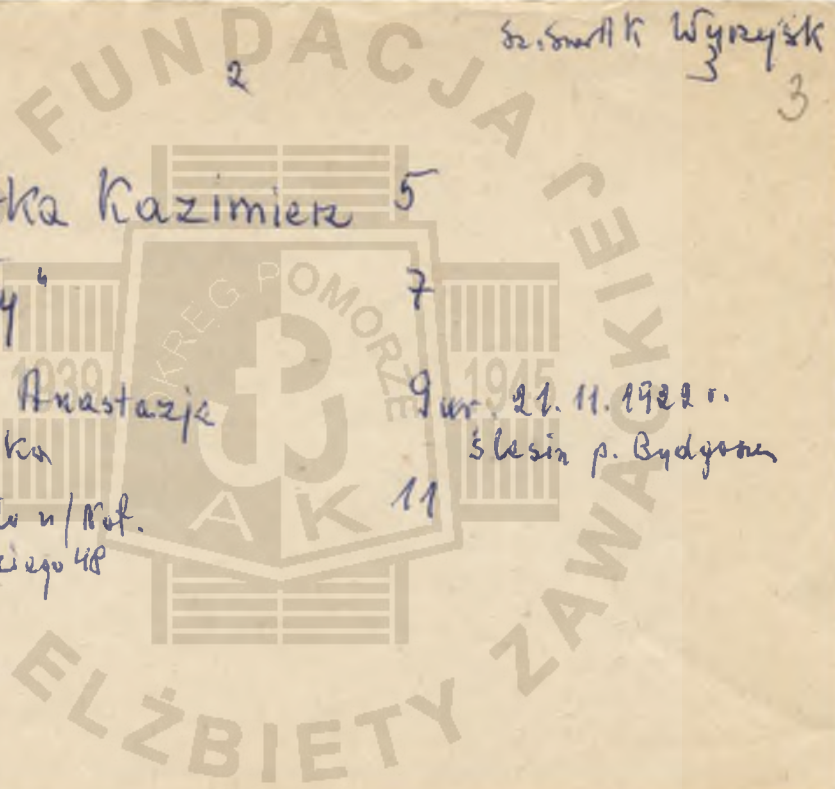 Wyrzysk
2 3 3
ka Kazimierz 5
y" 7
Anastazja 9 ur. 21.11.1922 r.
ka Ślesin p. Bydgoszcz
n/Not. 11
ciego 48
FUNDACJA JEN. ELŻBIETY ZAWACKIEJ
OKRĘG POMORZE
1939 1945
AK